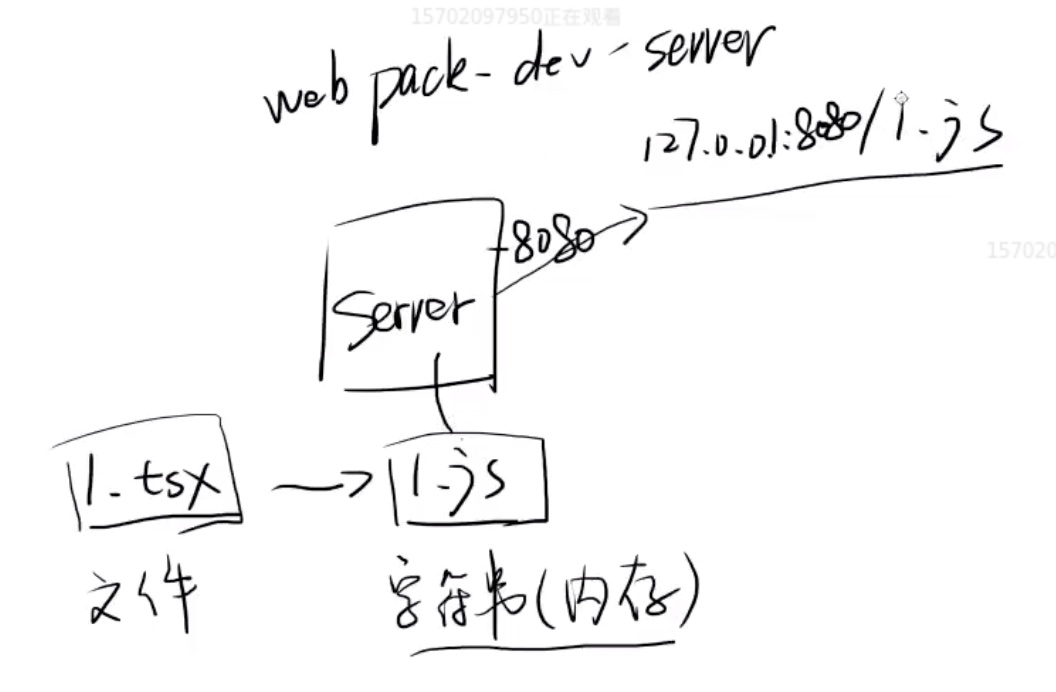 15702097950正在观看
webpack-dev-server
127.0.0.1:8080/1.js
8080
157020
Server
1.tsx
1.js
文件
字符串(内存)